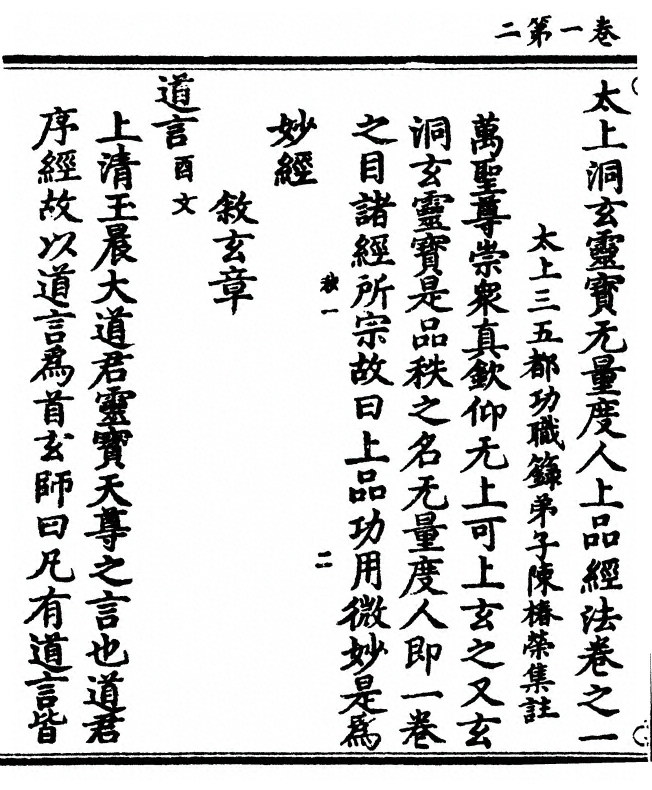 二第一卷
太上洞玄靈寶无量度人上品經法卷之一
太上三五都功職籙弟子陳椿榮集註
萬聖尊崇衆真欽仰无上可上玄之又玄
洞玄靈寶是品秩之名无量度人即一卷
之目諸經所宗故曰上品功用微妙是為
一
二
妙經
敘玄章
道言
酉文
上清玉晨大道君靈寶天尊之言也道君
序經故以道言為首玄師曰凡有道言皆